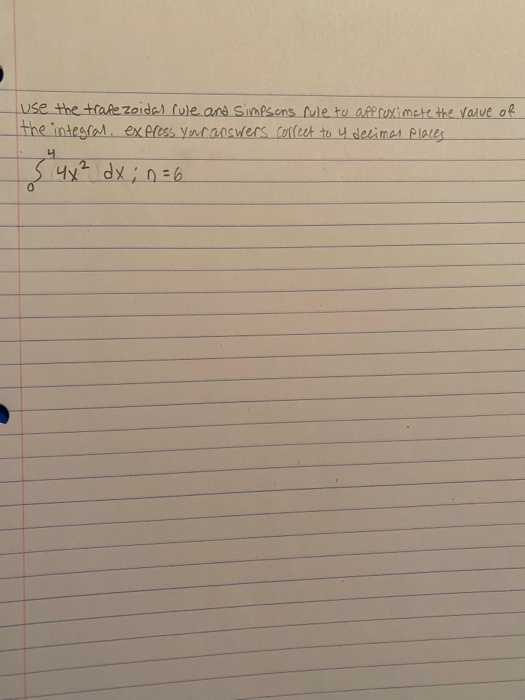 use the trapezoidal rule and simpsons rule to approximate the value of
the integral. express your answers correct to 4 decimal places
∫₀⁴ 4x² dx ; n = 6